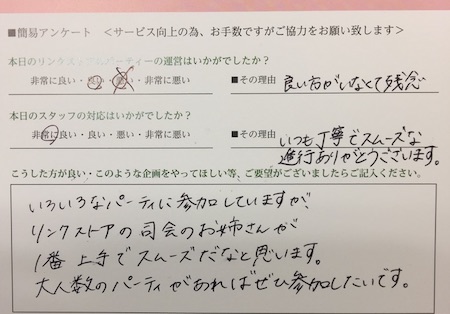 ■簡易アンケート ＜サービス向上の為、お手数ですがご協力をお願い致します＞
本日のリンクストアのパーティーの運営はいかがでしたか?
非常に良い・良い・悪い・非常に悪い ■その理由 良い方がいなくて残念
本日のスタッフの対応はいかがでしたか?
非常に良い・良い・悪い・非常に悪い ■その理由 いつも丁寧でスムーズな
進行ありがとうございます。
こうした方が良い・このような企画をやってほしい等、ご要望がございましたらご記入ください。
いろいろなパーティに参加していますが、
リンクストアの司会のお姉さんが
1番上手でスムーズだなと思います。
大人数のパーティがあればぜひ参加したいです。